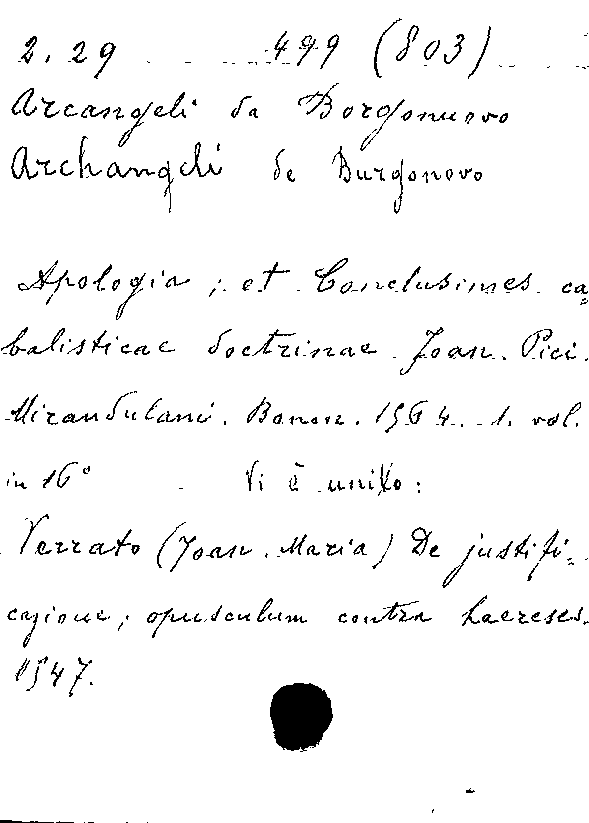 2. 29 499 (803)
Arcangeli da Borgonuovo
Archangeli de Burgonovo
Apologia ; et Conclusiones ca=
balisticae doctrinae Joan. Pici.
Mirandulani. Bonon. 1564. 1. vol.
in 16° Vi è unito:
Verrato (Joan. Maria) De justifi=
cazione; opusculum contra haereses.
1547.